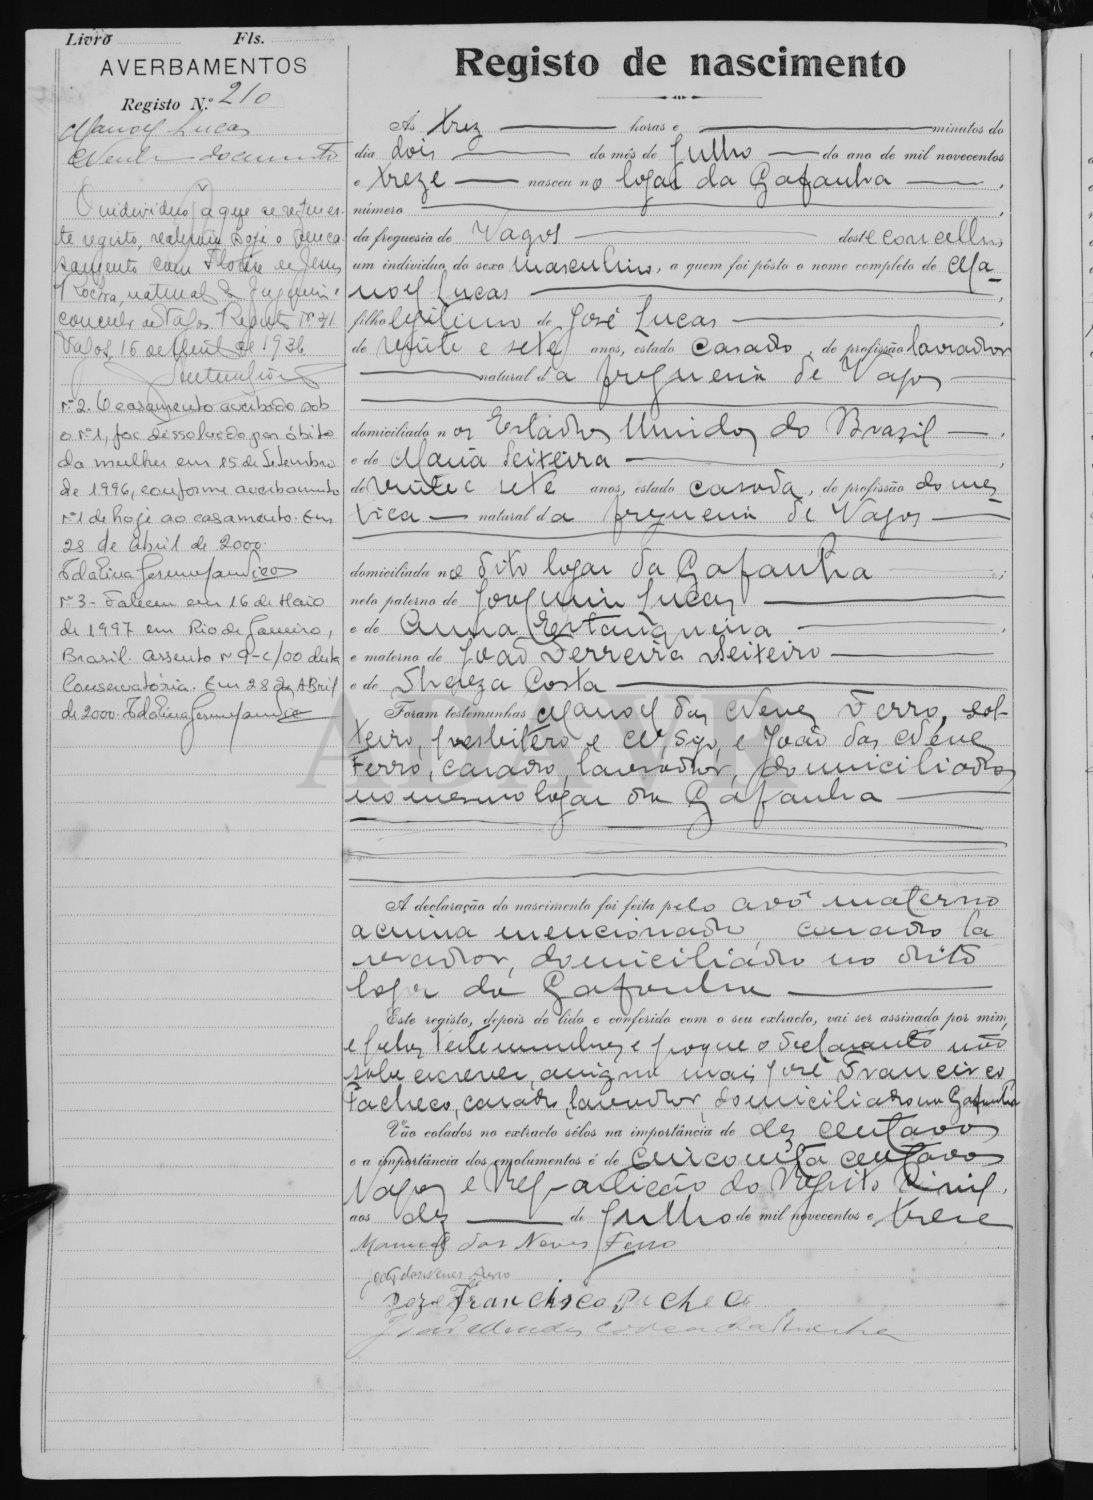 Livro Fls.
AVERBAMENTOS
Registo N.º 210
Manoel Lucas
Nenhum documento
O individuo a que se refere es-
te registo, realizou hoje o seu ca-
samento com de Jesus
Rocha, natural da freguesia e
concelho de Vagos. Registo Nº 41.
Vagos, 16 de Abril de 1936
nº 2. O casamento averbado sob
o nº 1, foi dissolvido por óbito
da mulher em 25 de Setembro
de 1996, conforme averbamento
nº 1 de hoje ao casamento. Em
28 de Abril de 2000.
nº 3 - Faleceu em 16 de Maio
de 1997 em Rio de Janeiro,
Brasil. Assento nº 9-C/00 desta
Conservatória. Em 28 de Abril
de 2000.
Registo de nascimento
Ás trez horas e minutos do
dia dois do mês de Julho do ano de mil novecentos
e treze nasceu no logar da Gafanha,
número
da freguesia de Vagos deste concelho
um individuo do sexo masculino, a quem foi pôsto o nome completo de Ma-
noel Lucas
filho legitimo de José Lucas
de vinte e sete anos, estado casado, de profissão lavrador
natural da freguesia de Vagos
domiciliado nos Estados Unidos do Brazil
e de Maria Teixeira
de vinte e sete anos, estado casada, de profissão domes-
tica natural da freguesia de Vagos
domiciliada no dito logar da Gafanha;
neto paterno de Joaquim Lucas
e de Anna Estanqueira
e materno de João Ferreira Teixeiro
e de Thereza Costa
Foram testemunhas Manoel das Neves Ferro, sol-
teiro, presbitero e João das Neves
Ferro, casado, lavrador, domiciliados
no mesmo logar da Gafanha
A declaração do nascimento foi feita pelo avô materno
acima mencionado, casado la
vrador, domiciliado no dito
logar da Gafanha
Este registo, depois de lido e conferido com o seu extracto, vai ser assinado por mim,
e pelas testemunhas e porque o declarante não
sabe escrever, assigna mais José Francisco
Pacheco, casado, lavrador, domiciliado na Gafanha
Vão colados no extracto sêlos na importância de dez centavos
e a importância dos emolumentos é de cincoenta centavos
Vagos e Repartição do Registo Civil,
aos dez de Julho de mil novecentos e treze
Manuel das Neves Ferro
João das Neves Ferro
Jozé Francisco Pacheco
ADAVR